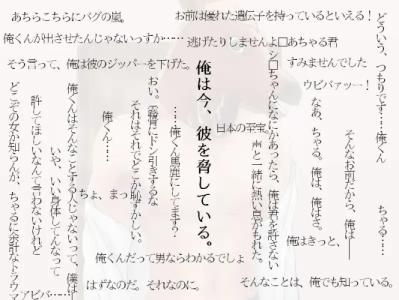 あちらこちらにバグの嵐。
お前は優れた遺伝子を持っているといえる！
俺くんが出させたんじゃないっすか……
逃げたりしませんよ□あちゃる君
そう言って、俺は彼のジッパーを下げた。
すみませんでした
ウビバァッー！
どういう、つもりです……俺くん
ちゃる……
そんなお前だから、俺は――
なあ、ちゃる。俺は、俺はさ。
俺はきっと、
シ□ちゃんになにかあったら、俺は君を許さない
日本の至宝。
声と一緒に熱い息がもれた。
俺は今、彼を脅している。
……俺くん馬鹿にしてます？
おい。露骨にドン引きするな
それはそれでどこか恥ずかしい。
俺くん……
ちょ、まっ
俺くんはそんなことする人じゃないって、僕は――
いや、いい身体してんなって
許してほしいなんて言わないけれど
どこぞの女か知らんが、ちゃるに余計なトラウマ
アビバ……！
俺くんだって男ならわかるでしょ
はずなのだ。それなのに。
そんなことは、俺でも知っている。